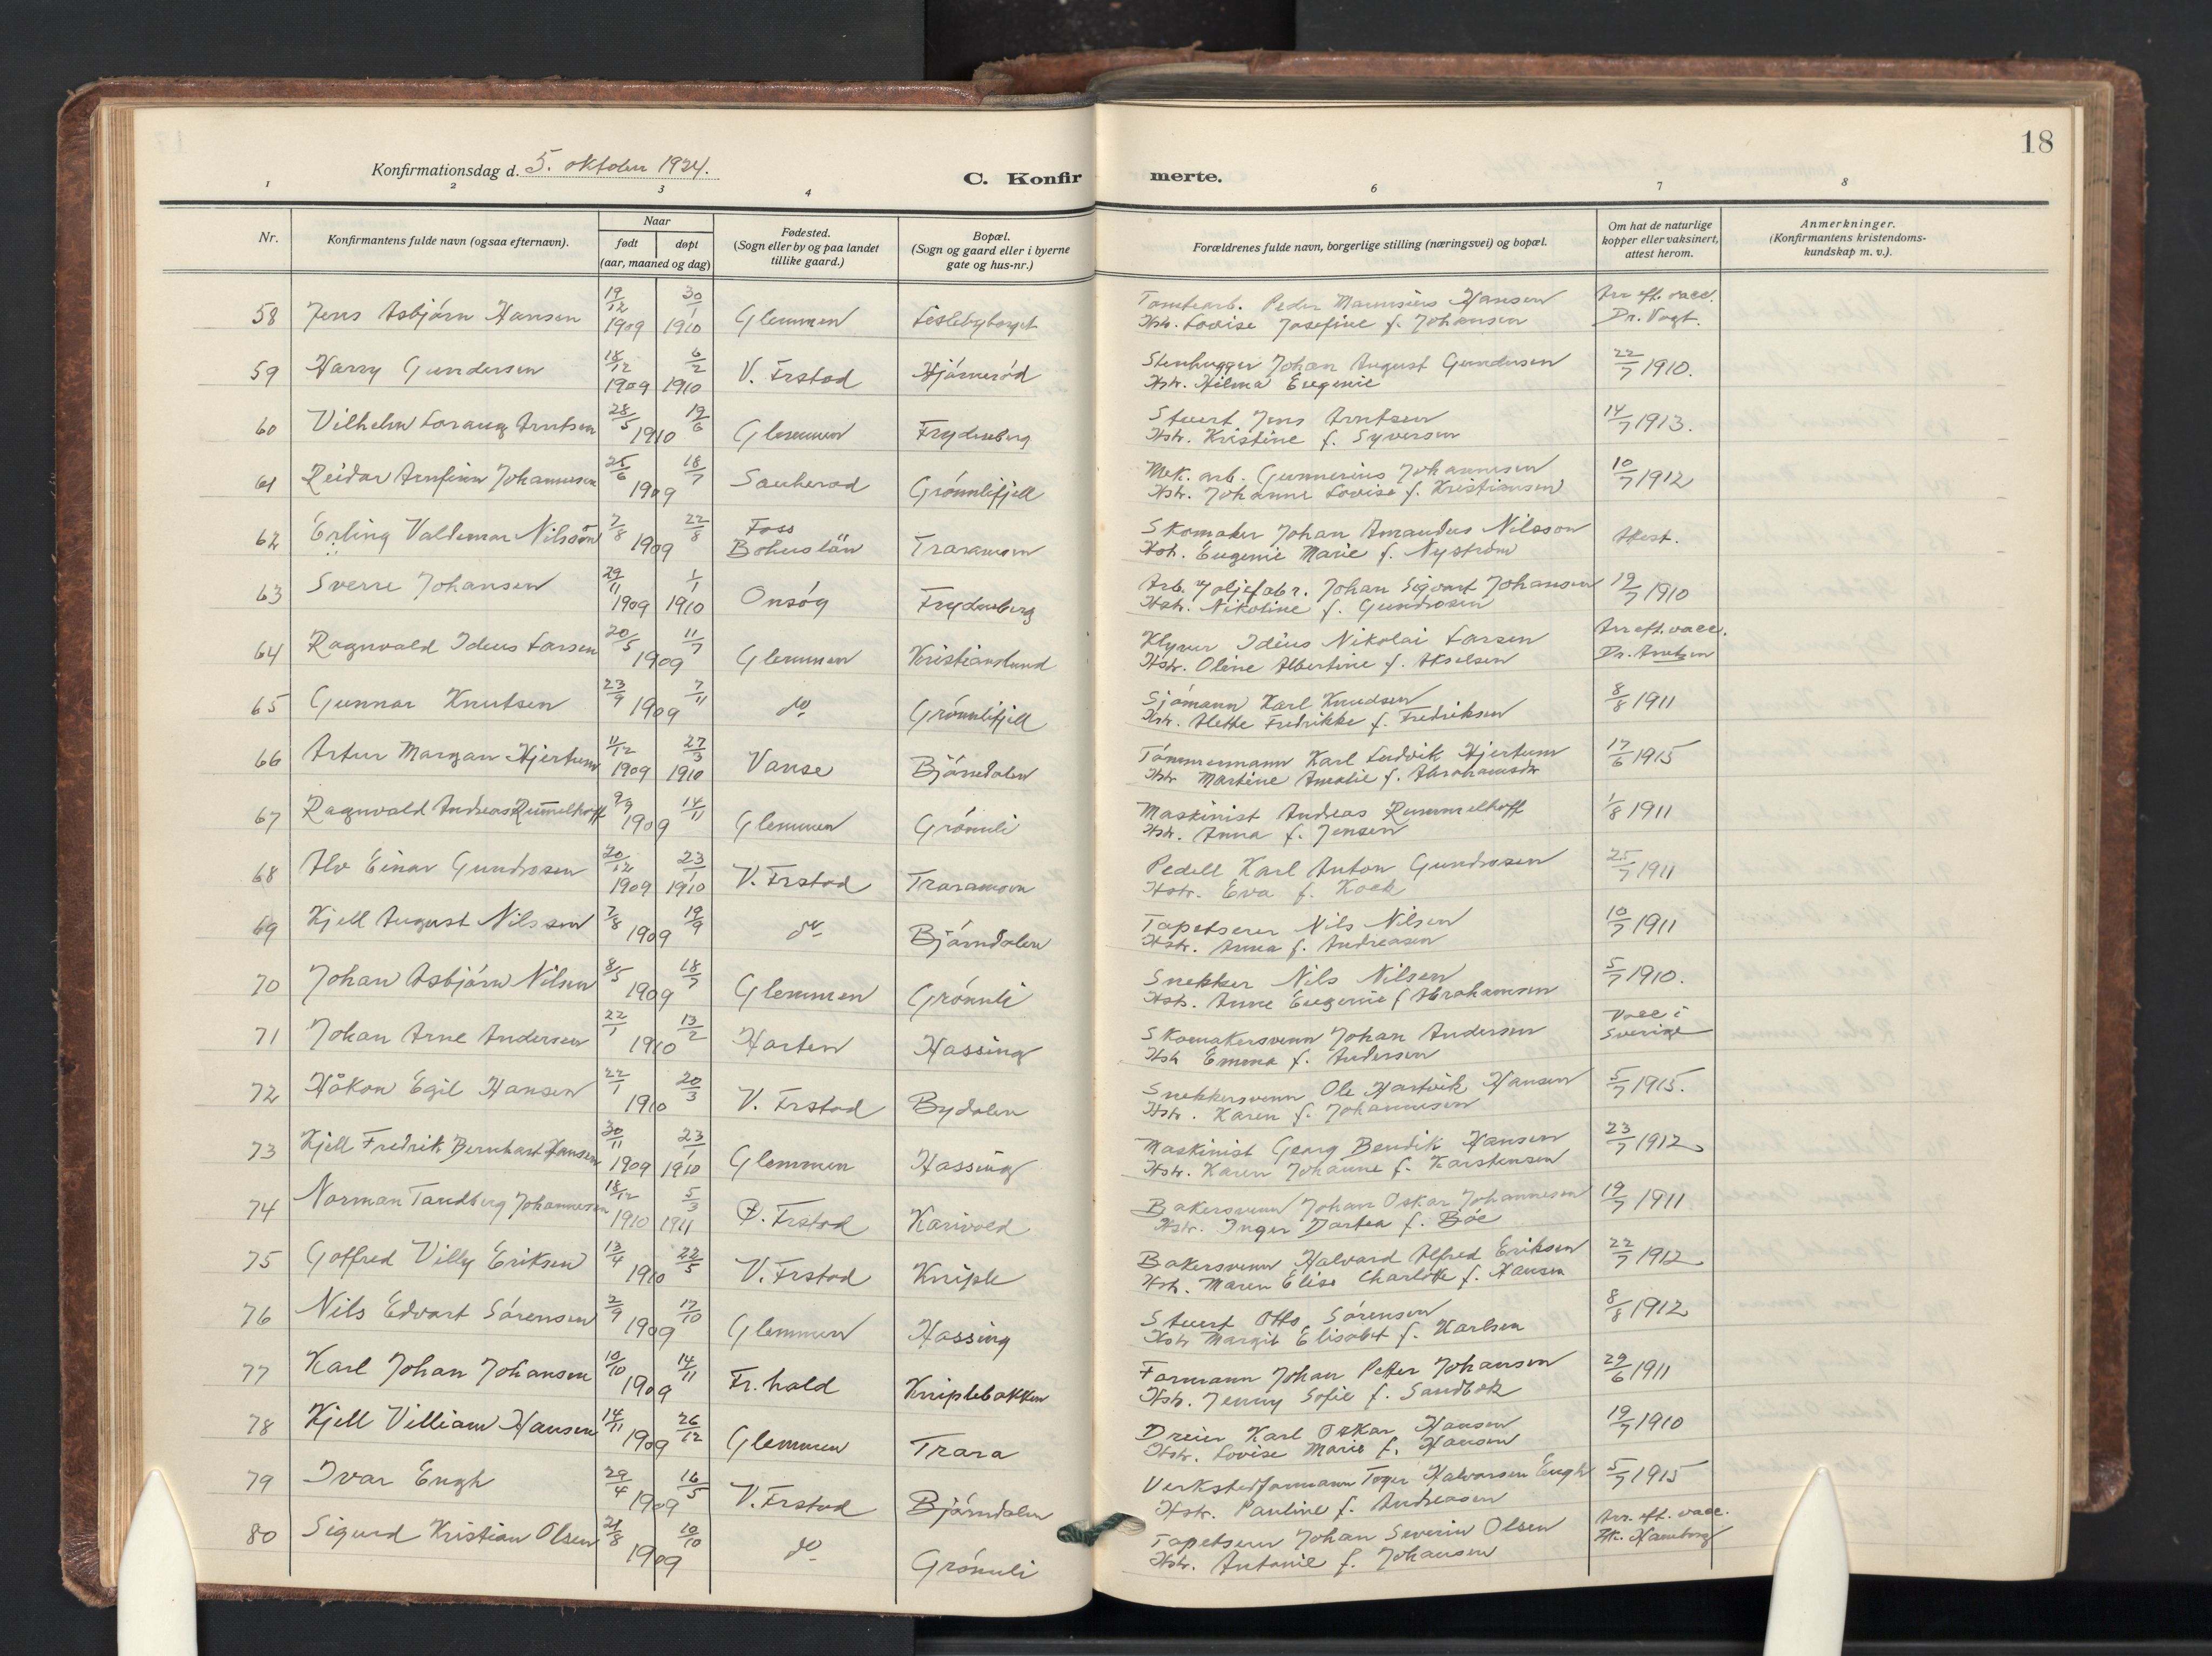 18
Konfirmationsdag d. 5. oktober 1924.
C. Konfirmerte.
1 2 3 4 6 7 8
Nr.
Konfirmantens fulde navn (ogsaa efternavn).
Naar
født
døpt
(aar, maaned og dag)
Fødested.
(Sogn eller by og paa landet
tillike gaard.)
Bopæl.
(Sogn og gaard eller i byerne
gate og hus-nr.)
Forældrenes fulde navn, borgerlige stilling (næringsvei) og bopæl.
Om hat de naturlige
kopper eller vaksinert,
attest herom.
Anmerkninger.
(Konfirmantens kristendoms-
kundskap m. v.).
58 Jens Asbjørn Hansen 19/12 1909 30/1 1910 Glemmen Lislebyberget Tomtearb. Peder Maurisius Hansen Arr eft. vacc.
Hstr. Lovise Josefine f. Johansen Dr. Vogt.
59 Harry Gundersen 18/12 1909 6/2 1910 V. Frstad Hjørnerød Stenhugger Johan August Gundersen 22/7 1910.
Hstr. Hilma Eugenie
60 Vilhelm Lorang Arntsen 28/5 19/6 1910 Glemmen Frydenberg Stuert Jens Arntsen 14/7 1913.
Hstr. Kristine f. Syversen
61 Reidar Arnfinn Johannesen 25/6 18/7 1909 Sauherad Grønnlifjell Mek. arb. Gunnerius Johannesen 10/7 1912
Hstr. Johanne Lovise f. Kristiansen
62 Erling Valdemar Nilsson 7/8 22/8 1909 Foss Bohuslän Traramoen Skomaker Johan Amandus Nilsson Attest.
Hstr. Eugenie Marie f. Nyström
63 Sverre Johansen 29/11 1909 1/1 1910 Onsøy Frydenberg Arb. v/ oljefabr. Johan Sigvart Johansen 19/7 1910
Hstr. Nikoline f. Gundrosen
64 Ragnvald Ideus Larsen 20/5 11/7 1909 Glemmen Kristianslund Klyver Idéus Nikolai Larsen Arr eft. vacc.
Hstr. Oline Albertine f. Akselsen Dr. Arntzen
65 Gunnar Knutsen 23/9 7/11 1909 do Grønnlifjell Sjømann Karl Knudsen 8/8 1911
Hstr. Alette Fredrikke f. Fredriksen
66 Artur Margan Hjertum 11/12 1909 27/3 1910 Vanse Bjørndalen Tømmermann Karl Ludvik Hjertum 17/6 1915
Hstr Martine Amalie f. Abrahamsdtr
67 Ragnvald Andreas Rummelhoff 9/9 14/11 1909 Glemmen Grønnli Maskinist Andreas Rummelhoff 1/8 1911
Hstr. Anna f. Jensen
68 Alv Einar Gundrosen 20/12 1909 23/1 1910 V. Frstad Traramoen Pedell Karl Anton Gundrosen 25/7 1911
Hstr. Eva f. Kock
69 Kjell August Nilssen 7/8 19/9 1909 do Bjørndalen Tapetserer Nils Nilsen 10/7 1911
Hstr. Anna f. Andreasen
70 Johan Asbjørn Nilsen 8/5 18/7 1909 Glemmen Grønnli Snekker Nils Nilsen 5/7 1910.
Hstr. Anne Eugenie f Abrahamsen
71 Johan Arne Andersen 22/1 13/2 1910 Horten Hassing Skomakersvenn Johan Andersen Vacc i
Hstr Emma f. Andersen Sverige
72 Håkon Egil Hansen 22/1 20/3 1910 V. Frstad Bydalen Snekkersvenn Ole Hartvik Hansen 5/7 1915.
Hstr. Karen f. Johannesen
73 Kjell Fredrik Bernhart Hansen 30/11 1909 23/1 1910 Glemmen Hassing Maskinist Georg Bendik Hansen 23/7 1912
Hstr. Karen Johanne f. Karstensen
74 Norman Tandberg Johannesen 18/12 1910 5/3 1911 Frstad Karivold Bakersvenn Johan Oskar Johannesen 19/7 1911
Hstr. Inger Dortea f. Bøe
75 Gotfred Villy Eriksen 13/4 22/5 1910 V. Frstad Kniple Bakersvenn Halvard Alfred Eriksen 22/7 1912
Hstr. Maren Elise Charlotte f. Hansen
76 Nils Edvart Sørensen 2/9 17/10 1909 Glemmen Hassing Stuert Otto Sørensen 8/8 1912
Hstr Margit Elisabet f. Karlsen
77 Karl Johan Johansen 10/10 14/11 1909 Fr.hald Kniplebakken Formann Johan Petter Johansen 29/6 1911
Hstr. Jenny Sofie f. Sandbæk
78 Kjell Villiam Hansen 14/11 26/12 1909 Glemmen Trara Dreier Karl Oskar Hansen 19/7 1910
Hstr. Lovise Marie f. Hansen
79 Ivar Engh 29/4 16/5 1909 V. Frstad Bjørndalen Verkstedformann Toger Halvorsen Engh 5/7 1915
Hstr. Pauline f. Andreasen
80 Sigurd Kristian Olsen 21/8 10/10 1909 do Grønnli Tapetserer Johan Severin Olsen Arr. eft. vacc.
Hstr. Antonie f. Johansen